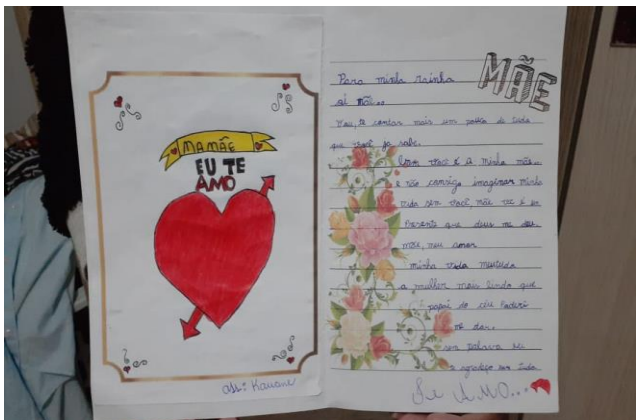 MAMÃE
EU TE
AMO
ass: Kauane
MÃE
Para minha rainha
oi mãe...
Vou te contar mais um pouco de tudo
que você ja sabe.
você é a minha mãe...
e não consigo imaginar minha
vida sem você, mãe vc é um
Presente que deus me deu
mãe, meu amor
minha vida
a mulher mais linda que
papai do céu Poderia
me dar.
sem palavra eu
te agradeço por tudo
Te AMO...